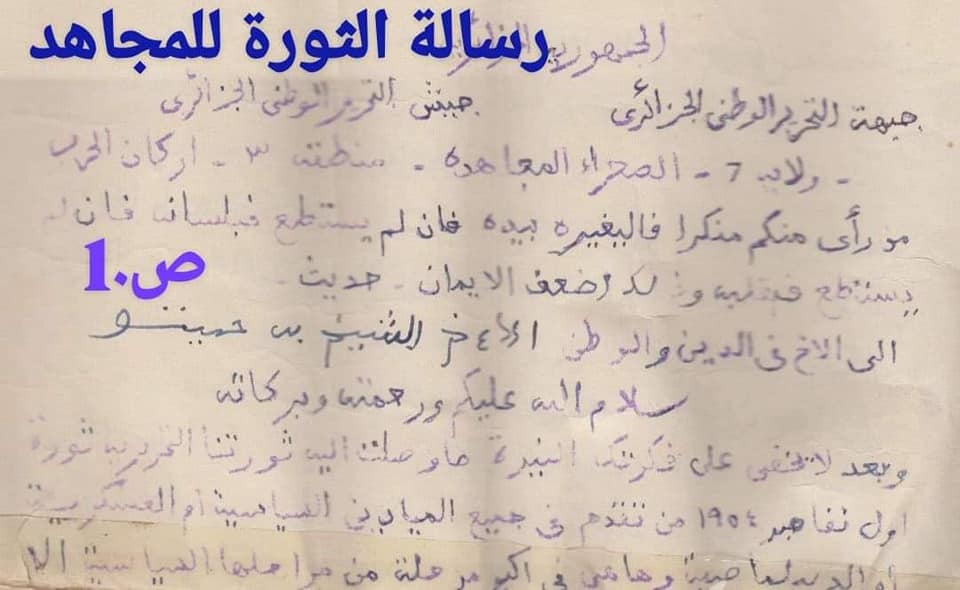 رسالة الثورة للمجاهد
الجمهورية الجزائرية
جبهة التحرير الوطني الجزائري جيش التحرير الوطني الجزائري
- ولاية 7 - الصحراء المجاهدة - منطقة ٣ - اركان الحرب
من رأى منكم منكرا فاليغيره بيده فان لم يستطع فبلسانه فان لم
يستطع فبقلبه وذلك اضعف الايمان - حديث -
ص.1
الى الاخ في الدين والوطن الأخ الشيخ بن
سلام الله عليكم ورحمته وبركاته
وبعد لا يخفى على فكرتك النيرة ما وصلت اليه ثورتنا التحررية ثورة
اول نفامبر ١٩٥٤ من تقدم في جميع الميادين السياسية أم العسكرية
أم وهاهي في اكبر مرحلة من مراحلها السياسية